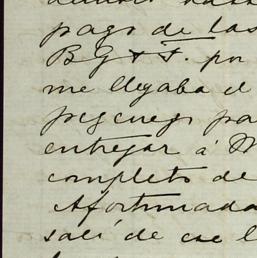 pago de las
B G & F. por
me llegaba el
pa
entregar á M
completo de
Afortunada
salí de ese l